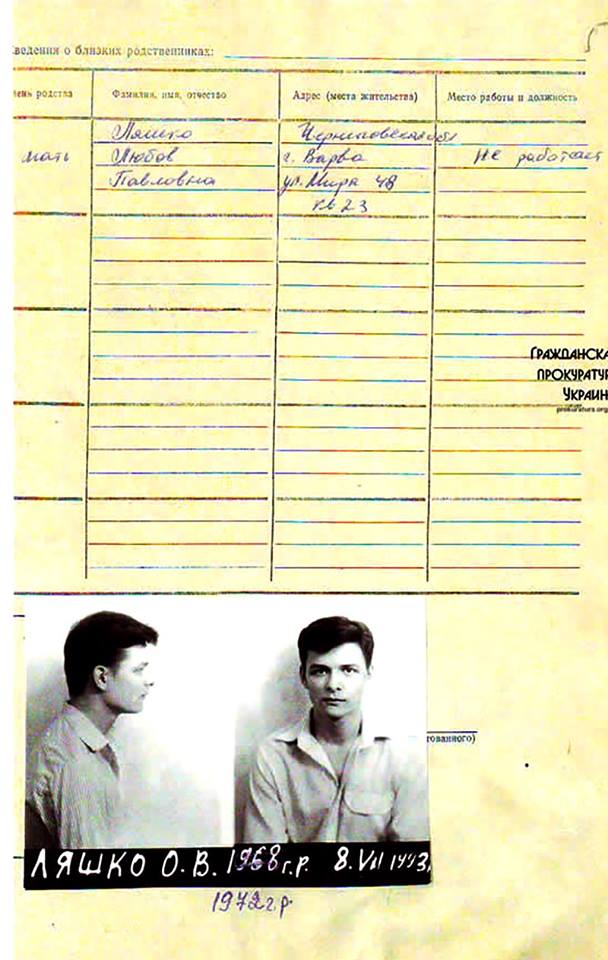 5
ведения о близких родственниках:
ень родства Фамилия, имя, отчество Адрес (места жительства) Место работы и должность
Ляшко Черниговская обл
мать Любов г. Варва Не работает
Павловна ул. Мира 48
кв 23
ГРАЖДАНСКА
ПРОКУРАТУР
УКРАИН
prokuratura.org
тованного)
ЛЯШКО О.В. 1968 г.р. 8.VII 1993.
1972 г.р